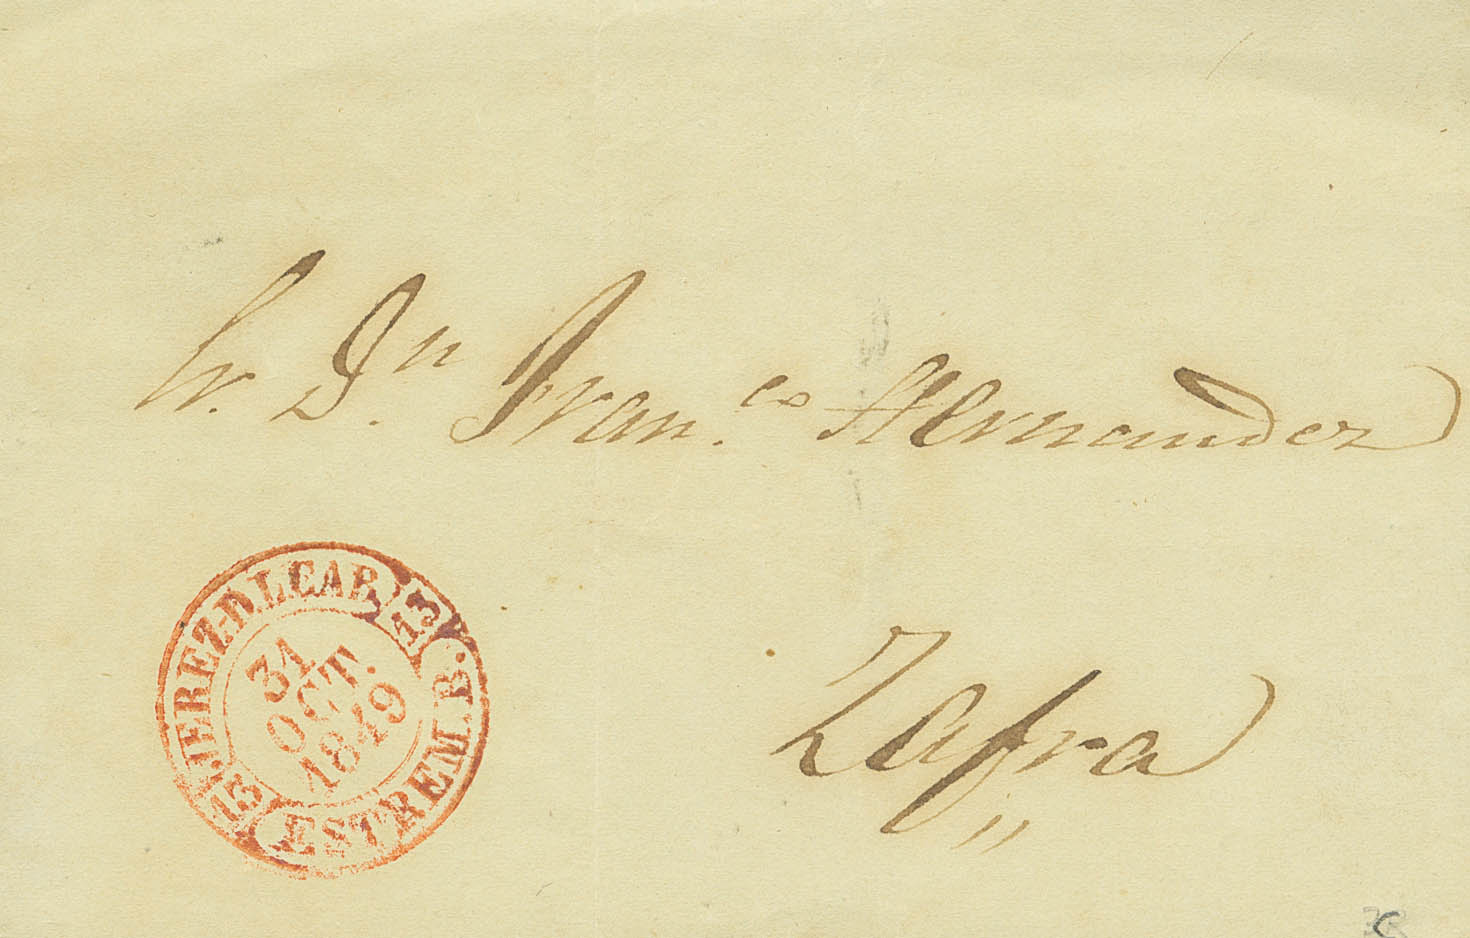 Sr. Dn. Fran.co Hernandez
Zafra
JEREZ-D.LCAB.
13
31
OCT.
1849
13
ESTREM. B.